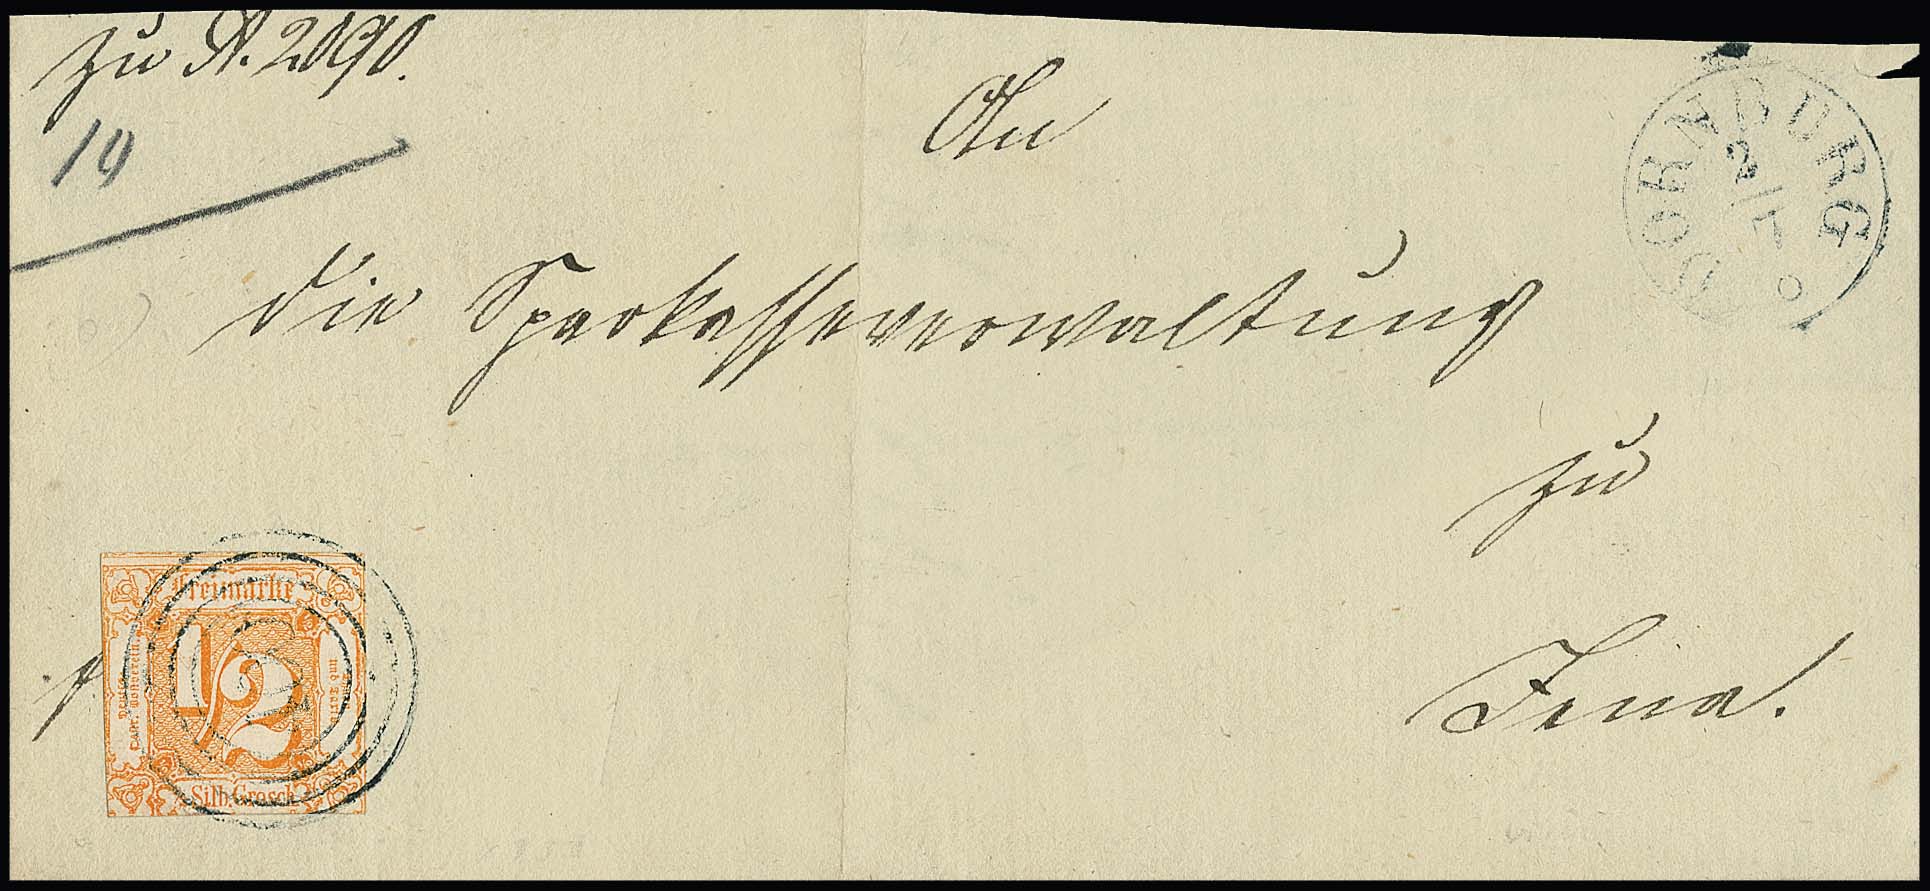 zu A. 2090.
19
An
die Sparkasseverwaltung
zu
Jena.
DORNBURG
2/7
Freimarke
1/2
Silb. Grosch